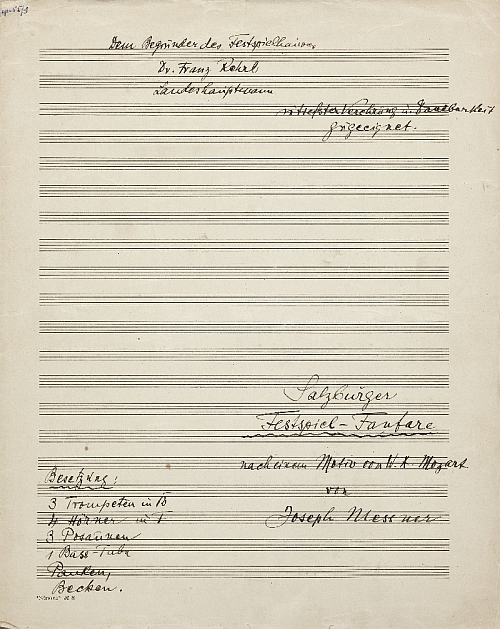 Dem Begründer des Festspielhauses,
Dr. Franz Rehrl
Landeshauptmann
in tiefster Verehrung u. Dankbarkeit
zugeeignet.
Salzburger
Festspiel-Fanfare
nach einem Motiv von W. A. Mozart
von
Joseph Messner
Besetzung:
3 Trompeten in B
4 Hörner in F
3 Posaunen
1 Bass-Tuba
Pauken,
Becken.